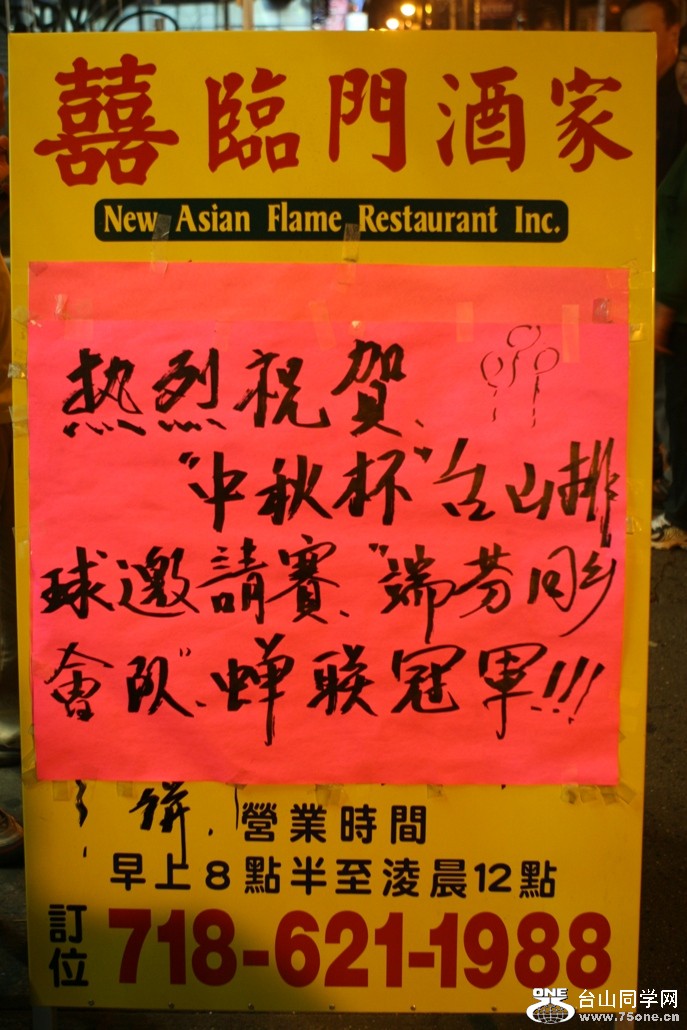 囍臨門酒家
New Asian Flame Restaurant Inc.
热烈祝贺、
"中秋杯"台山排
球邀請賽、"端芬同乡
會队"、蝉联冠軍!!!
餅.
營業時間
早上8點半至淩晨12點
訂位 718-621-1988
ONE 台山同学网
www.75one.cn